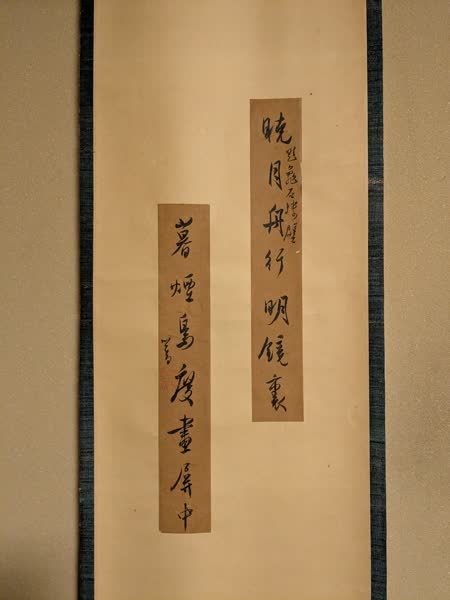 暁月舟行明鏡裏
暮煙鳥度畫屏中